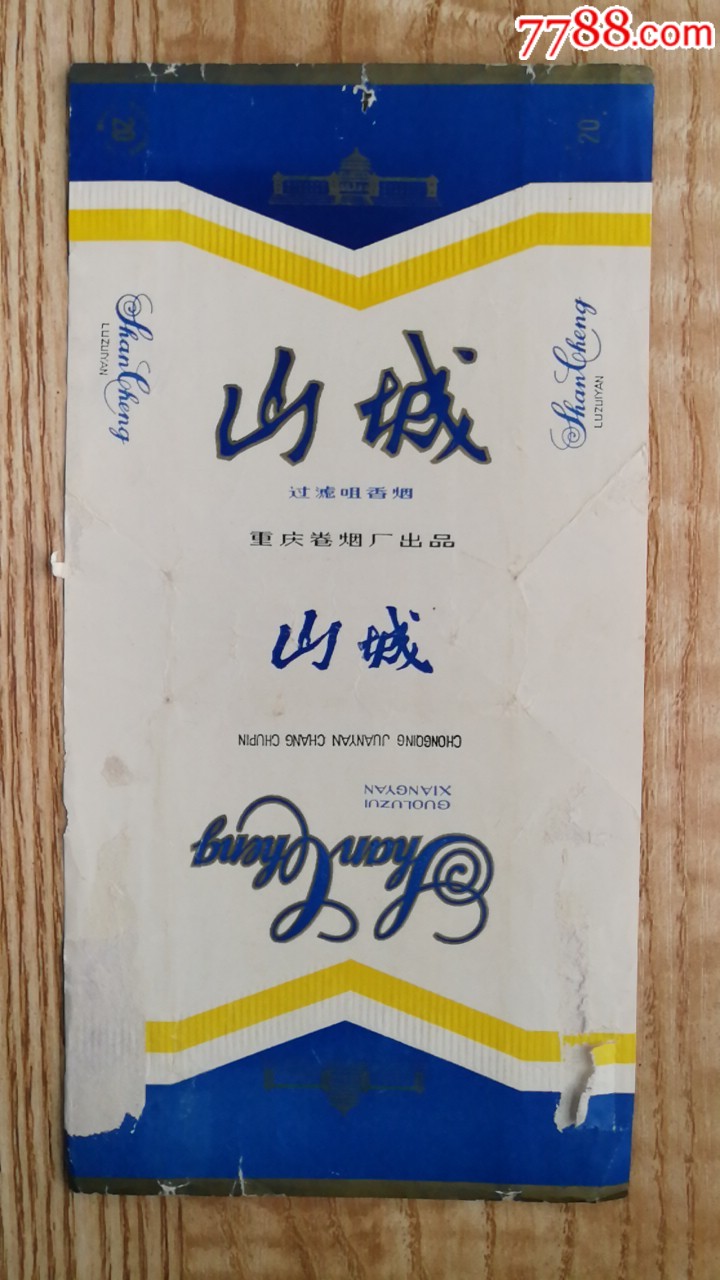 7788.com
20
20
Shan Cheng
LUZUIYAN
Shan Cheng
LUZUIYAN
山城
过滤咀香烟
重庆卷烟厂出品
山城
CHONGQING JUANYAN CHANG CHUPIN
GUOLUZUI
XIANGYAN
Shan Cheng